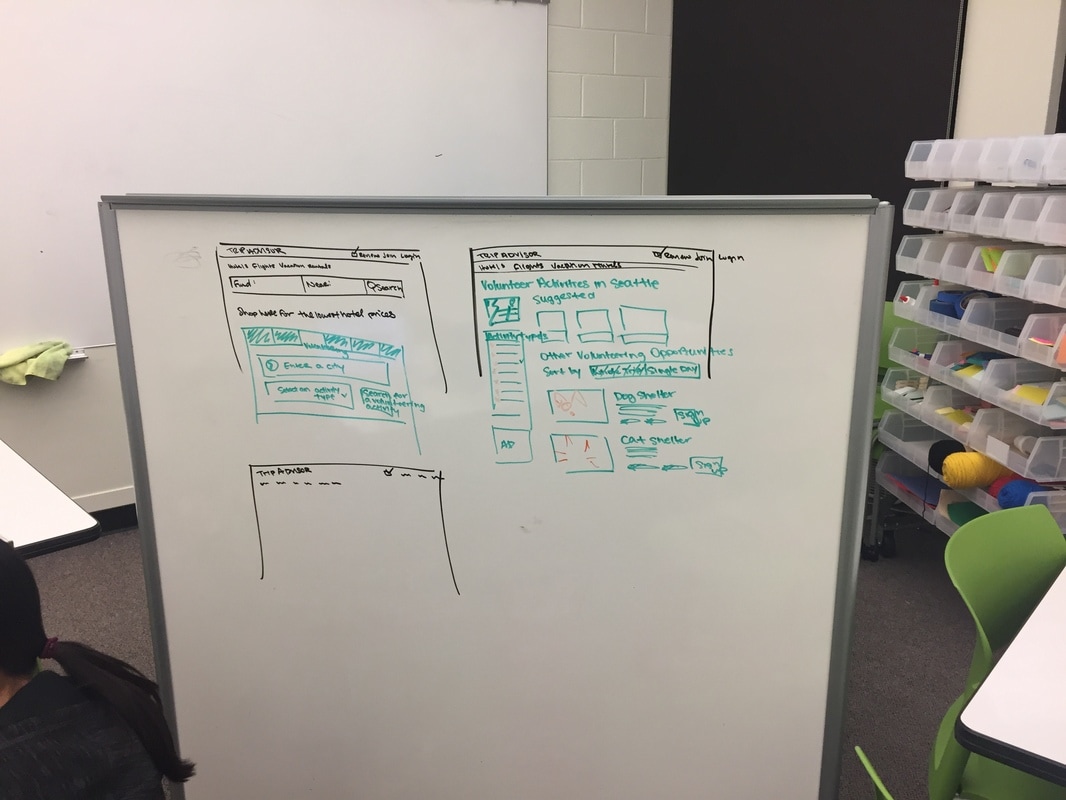 TRIPADVISOR
Review Join Login
Hotels Flights Vacation Rentals
Find:
Near:
Search
Shop here for the lowest hotel prices
Volunteering
Enter a city
Select an activity type
Search for a volunteering activity
TRIPADVISOR
Review Join Login
Hotels Flights Vacation Rentals
Volunteer Activities in Seattle
Suggested
Activity types
Other Volunteering Opportunities
Sort by
Single Day
Dog Shelter
Sign up
Cat Shelter
Sign
AD
TRIPADVISOR